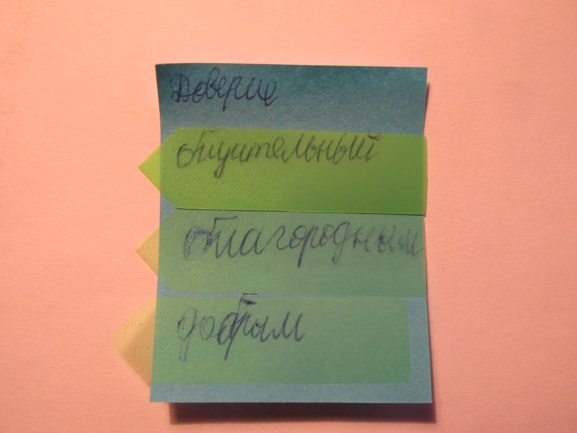 Доверие
общительный
благородным
добрым